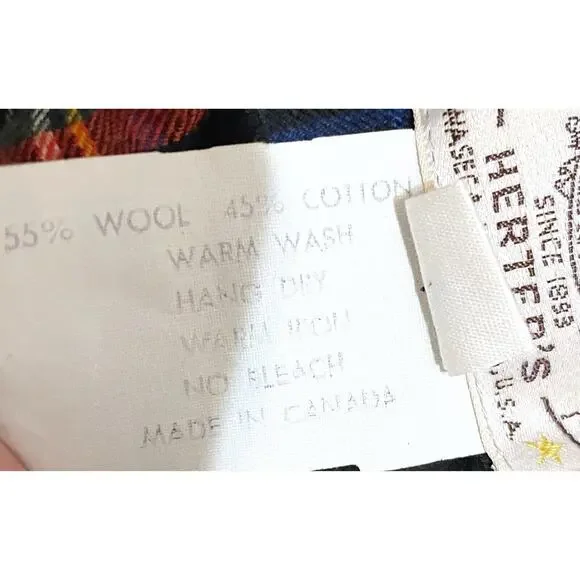 55% WOOL 45% COTTON
WARM WASH
HANG DRY
WARM IRON
NO BLEACH
MADE IN CANADA
HERTER'S
SINCE 1893
WASECA
U.S.A.